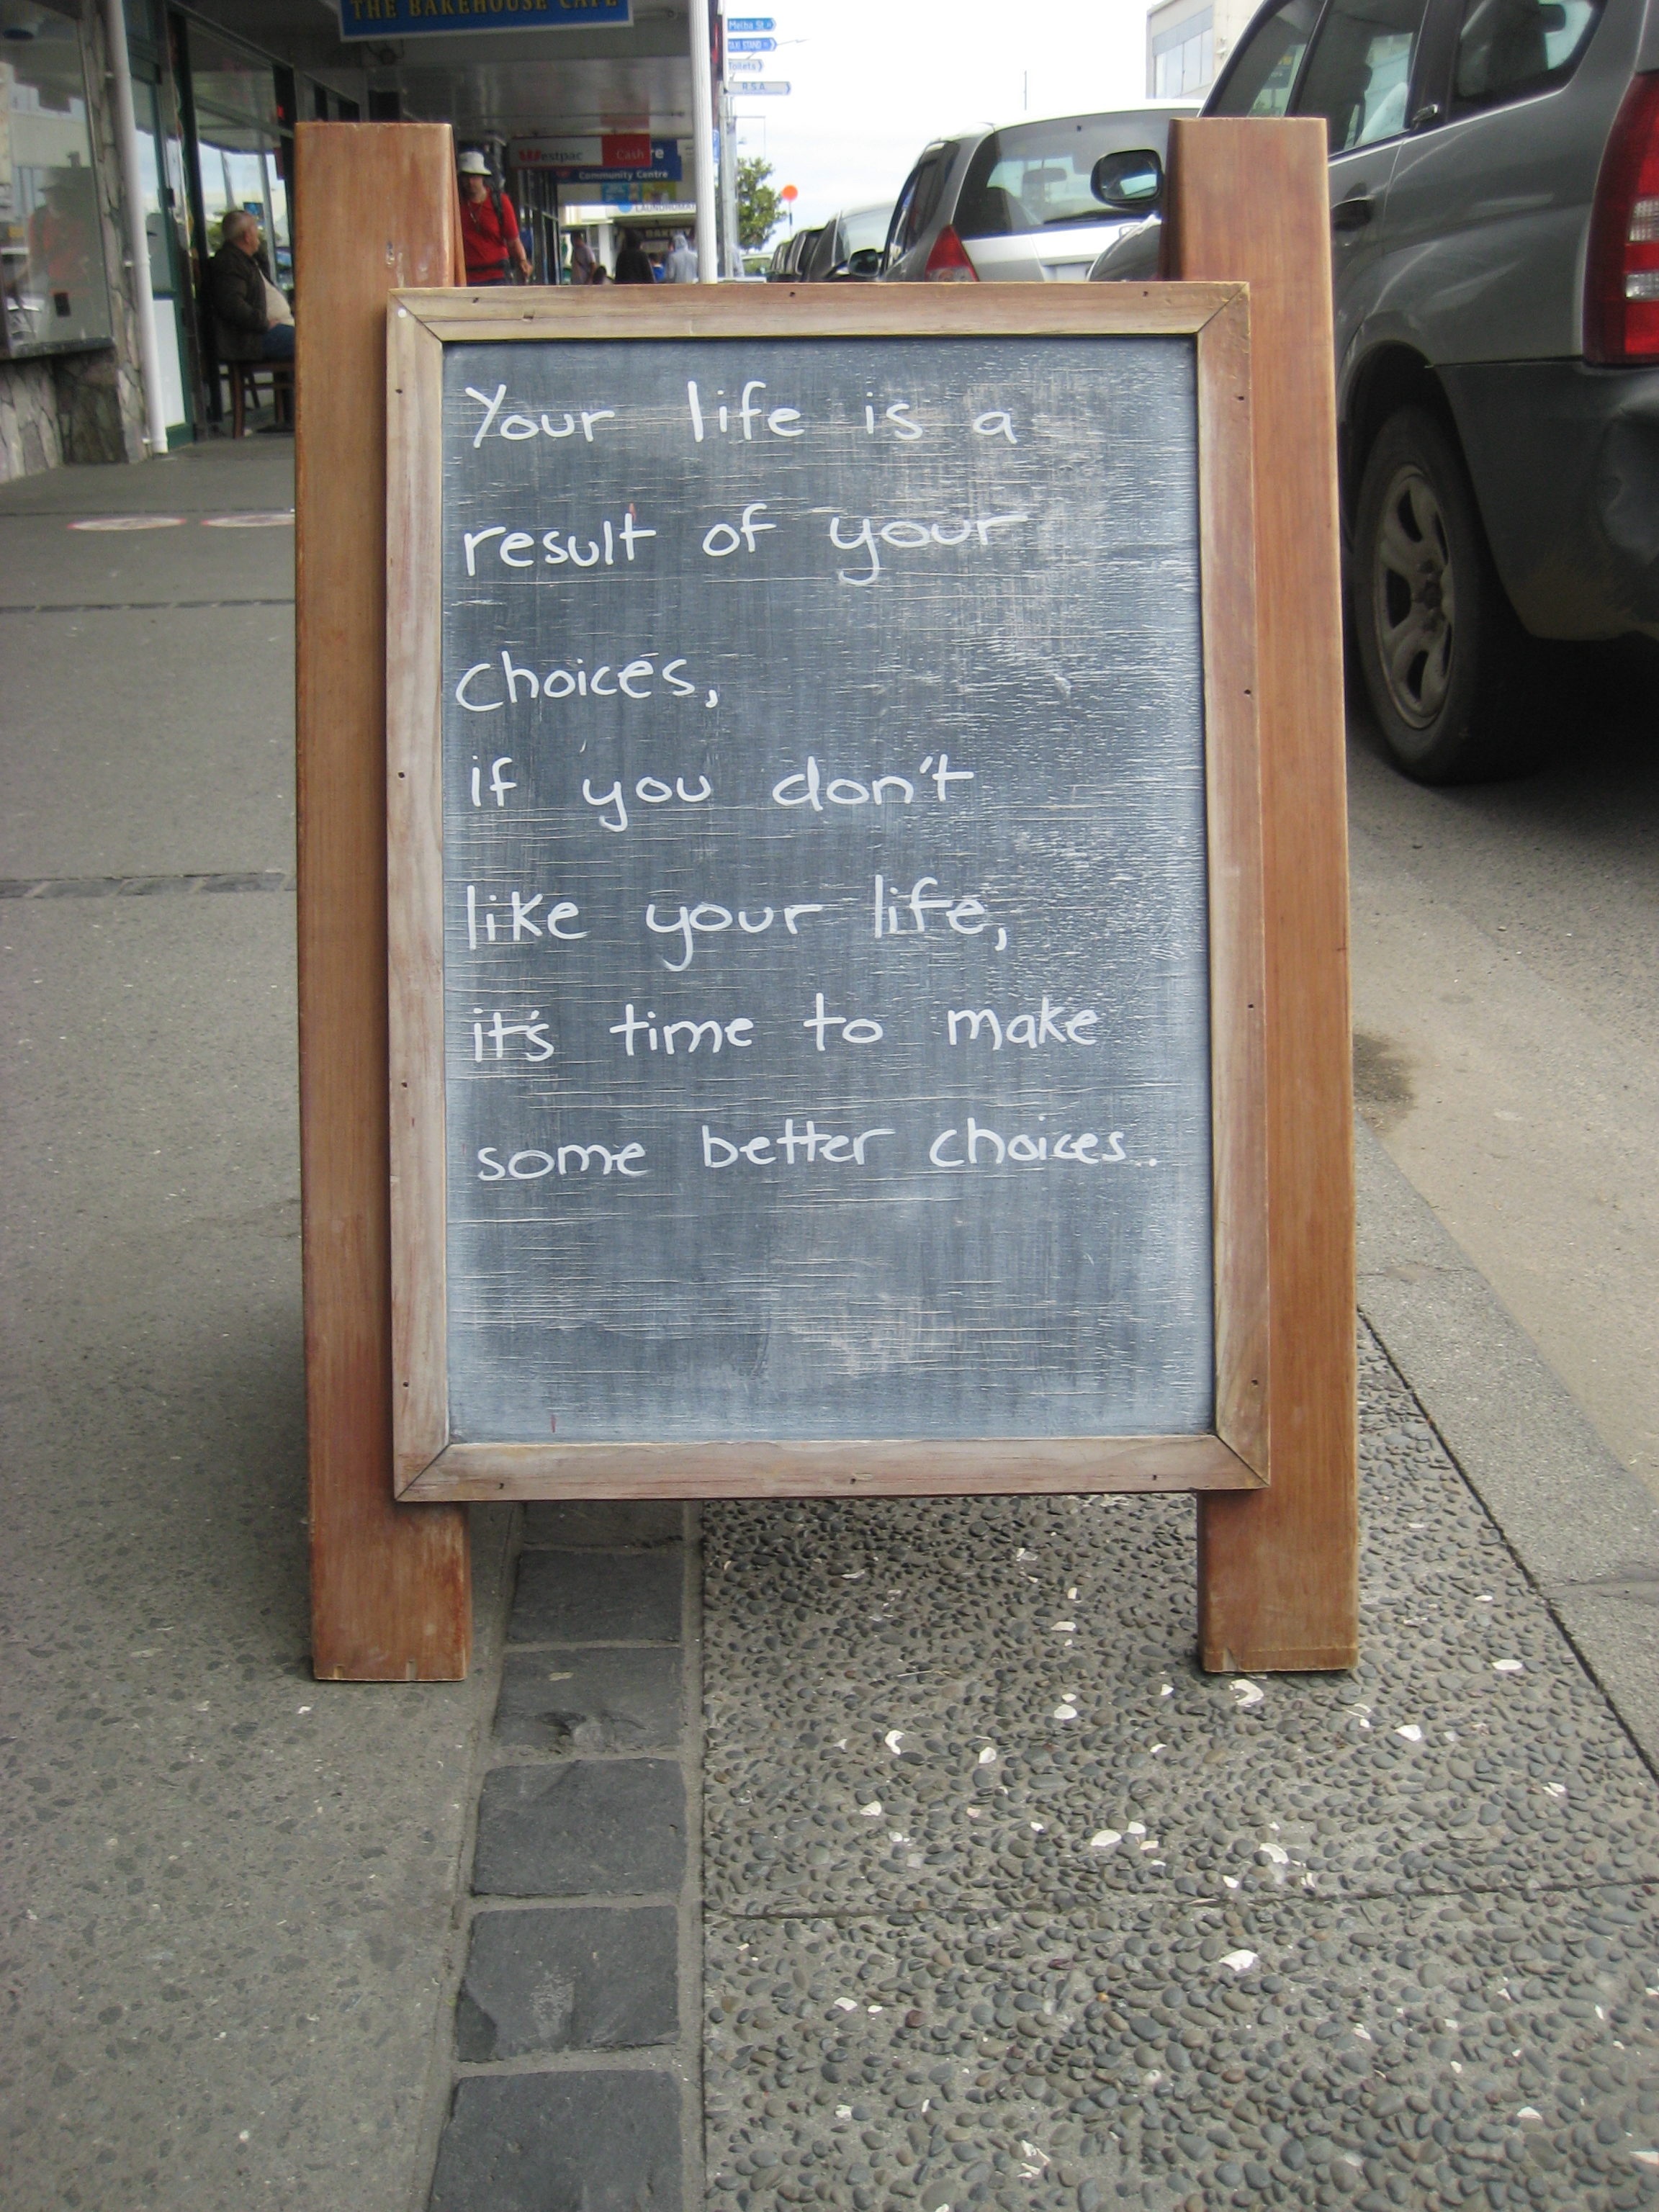 THE BAKEHOUSE CAFE
Melba St
TAXI STAND
Toilets
R.S.A.
Westpac Cash
Community Centre
BAKERY
Your life is a
result of your
choices,
if you don't
like your life,
it's time to make
some better choices.